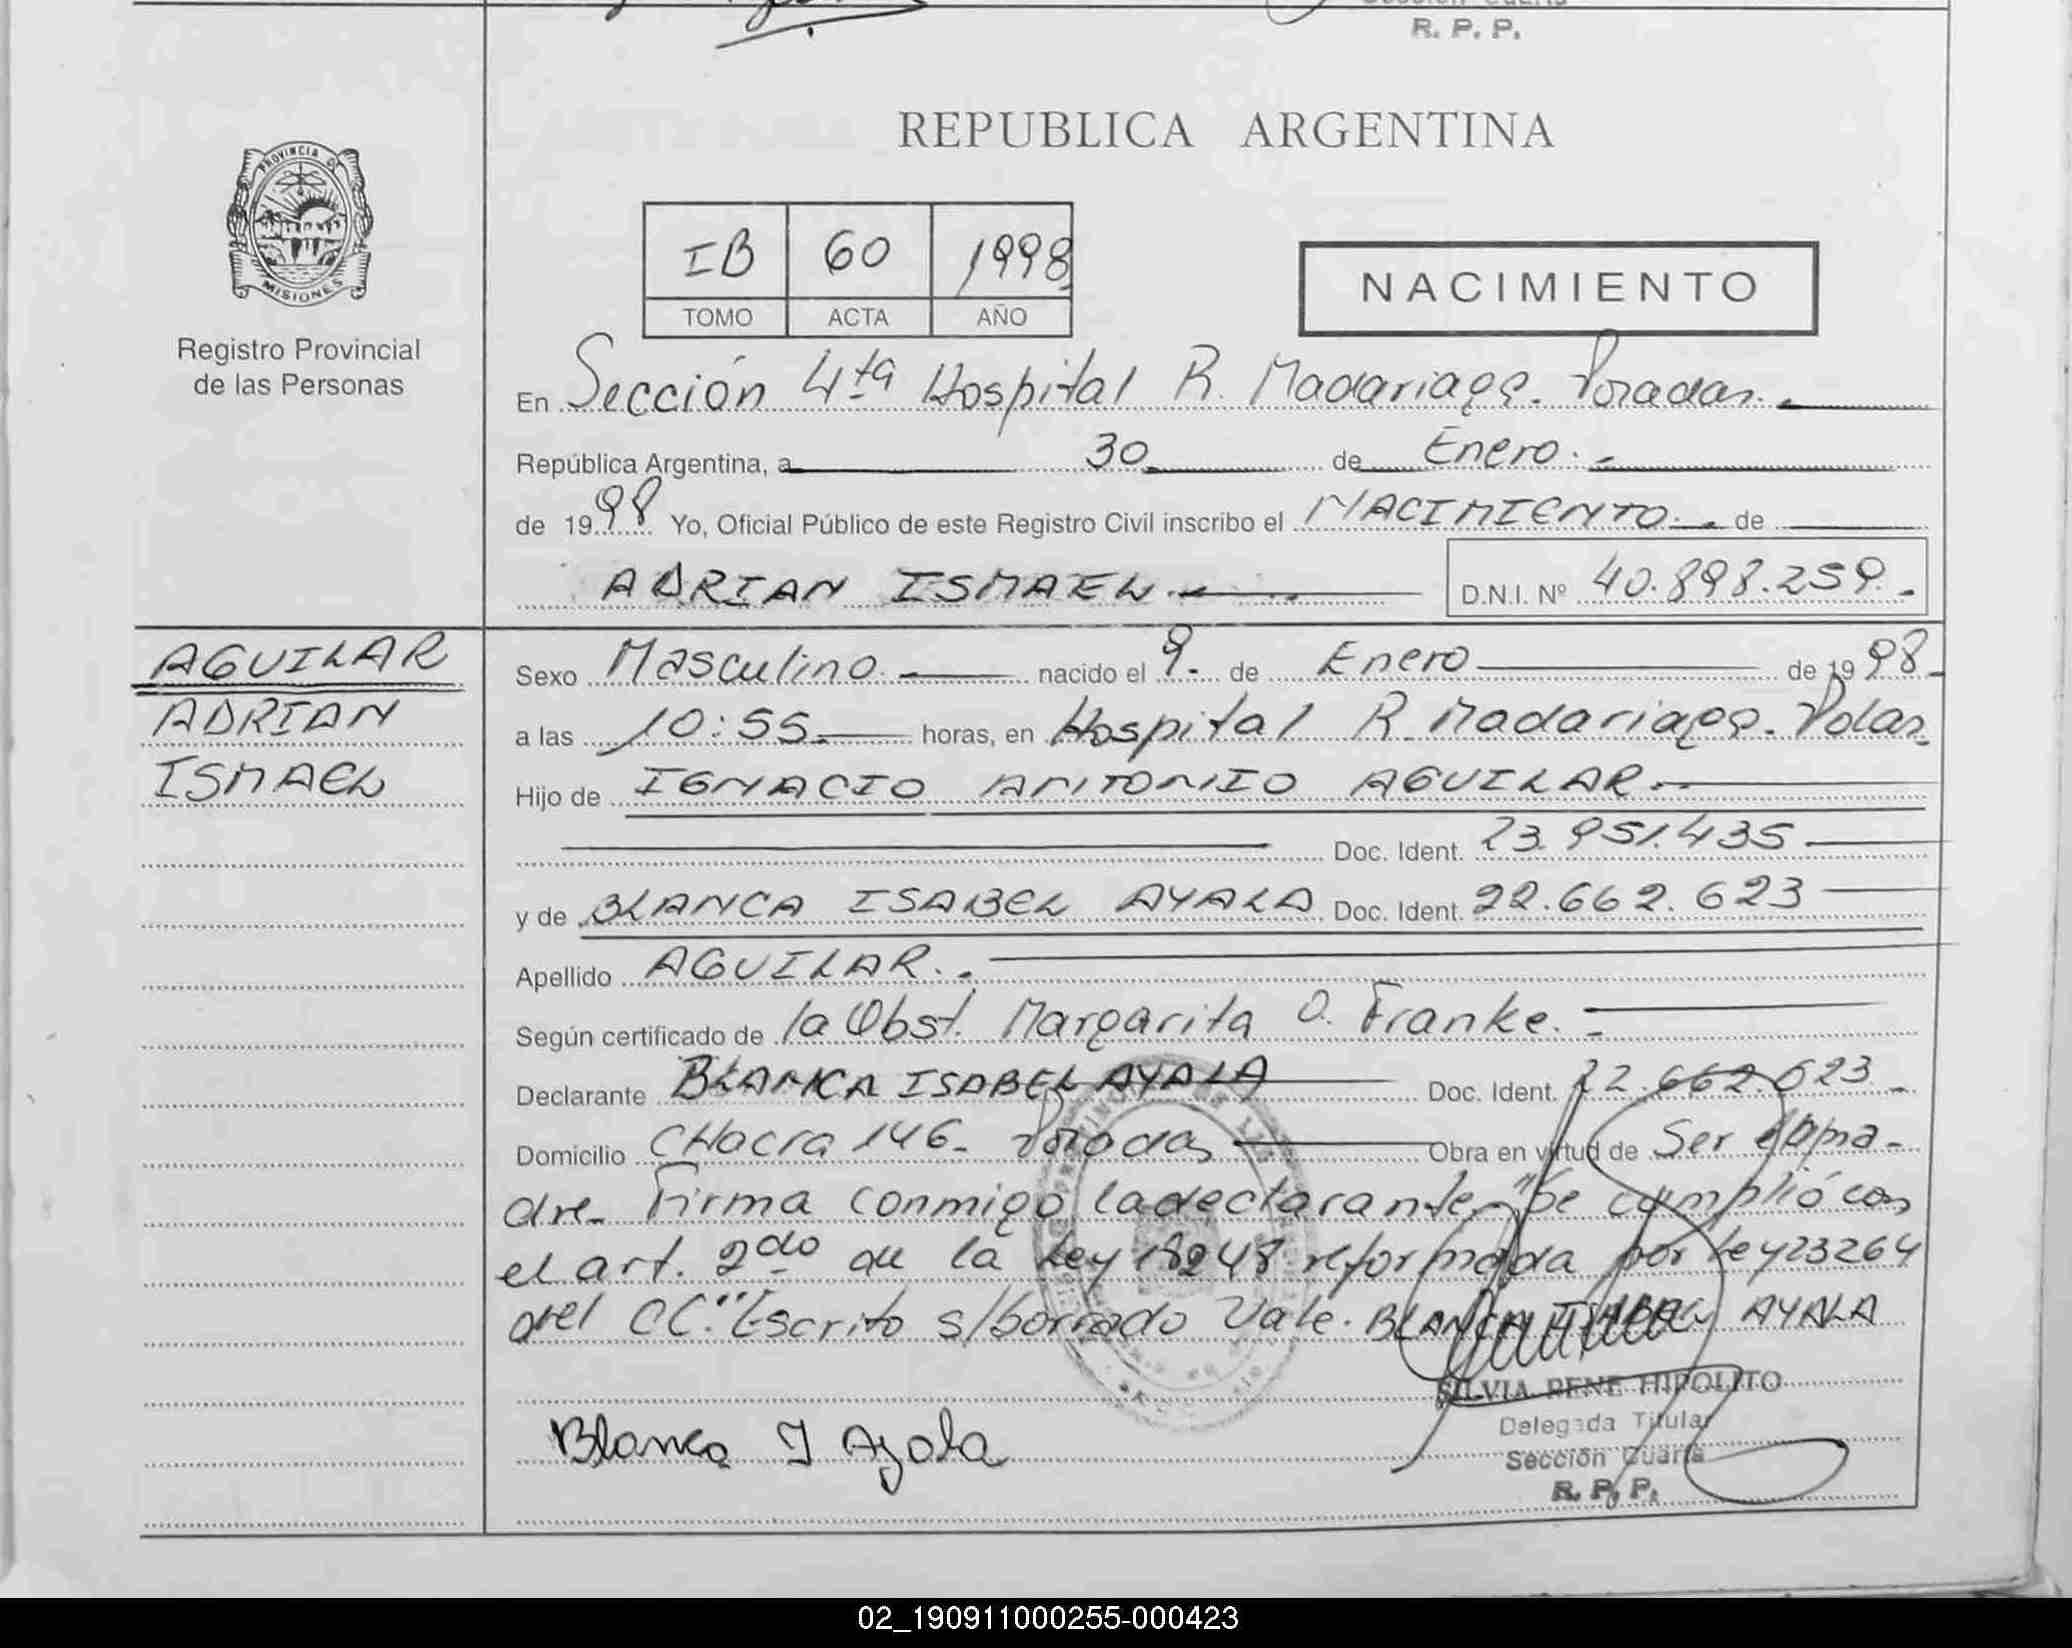 R. P. P.
REPUBLICA ARGENTINA
PROVINCIA DE
MISIONES
Registro Provincial
de las Personas
IB 60 1998
TOMO ACTA AÑO
NACIMIENTO
En Sección 4ta Hospital R. Madariaga. Posadas.
República Argentina, a 30 de Enero.
de 1998 Yo, Oficial Público de este Registro Civil inscribo el NACIMIENTO. de
ADRIAN ISMAEL. D.N.I. Nº 40.898.259.
AGUILAR
ADRIAN
ISMAEL
Sexo Masculino. nacido el 9. de Enero de 1998.
a las 10:55. horas, en Hospital R. Madariaga. Pdas.
Hijo de IGNACIO ANTONIO AGUILAR.
Doc. Ident. 23.951.435
y de BLANCA ISABEL AYALA Doc. Ident. 22.662.623
Apellido AGUILAR.
Según certificado de la Obst. Margarita O. Franke.
Declarante BLANCA ISABEL AYALA Doc. Ident. 22.662.623
Domicilio CHacra 146. Posadas Obra en virtud de Ser la ma-
dre. Firma conmigo la declarante. "Se cumplió con
el art. 2do de la Ley 18248 reformada por Ley 23264
del CC." Escrito s/borrado Vale. BLANCA ISABEL AYALA
SILVIA RENE HIPOLITO
Delegada Titular
Sección Cuarta
R. P. P.
Blanca I Ayala
02_190911000255-000423